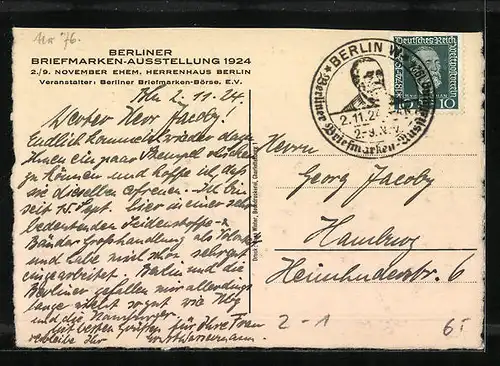 No 76.
BERLINER
BRIEFMARKEN-AUSSTELLUNG 1924
2./9. NOVEMBER EHEM. HERRENHAUS BERLIN
Veranstalter: Berliner Briefmarken-Börse. E.V.
Bln 2.11.24.
Werter Herr Jacoby!
Endlich komme ich wieder dazu
Ihnen ein paar Stempel schicken
zu können und hoffe ich, daß
sie dieselben erfreuen. Ich bin
seit 15. Sept. hier in einer sehr
bedeutenden Seidenstoffe- u.
Bänder Großhandlung als Volontär
und habe mich schon sehr gut
eingearbeitet. Berlin und die
Berliner gefallen mir allerdings
lange nicht so gut wie Hbg
und die Hamburger.
Mit besten Grüßen für Ihre Frau
verbleibe Ihr
BERLIN W
2.11.24
2.-9. Nov.
Berliner Briefmarken-Ausstellung
Deutsches Reich
Weltpostverein
10 10
Herrn
Georg Jacoby
Hamburg
Heimhuderstr. 6
2-1
6.-